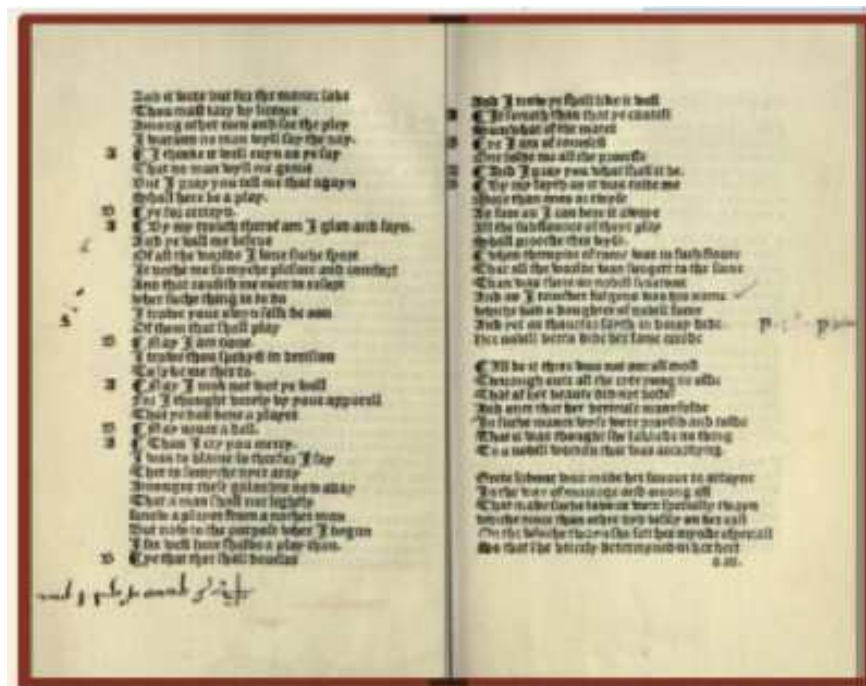 And it were but for the maner sake
Thou mast tary by licence
Among other men and see the play
I warant no man wyll say the nay.
A ¶ I thinke it well euyn as ye say
That no man wyll me greue
But I pray you tell me that agayn
Shall here be a play.
B ¶ ye for certeyn.
A ¶ By my trouth therof am I glad and fayn.
And ye will me beleue
Of all the worlde I loue suche sport
It dothe me so myche plesure and comfort
And that causith me euer to resort
wher suche thing is to do
I trowe your owyn selfe be oon
Of them that shall play
B ¶ Nay I am none.
I trowe thou spekyst in derision
To lyke me therto.
A ¶ Nay I mok not wot ye well
For I thought verely by your apparell
That ye had bene a player
B ¶ Nay neuer a dell.
A ¶ Than I cry you mercy.
I was to blame lo therfor I say
Ther is so myche nyce aray
Amonges these galandis now aday
That a man shall not lightly
knowe a player from a nother man
But now to the purpose wher I began
I see well here shalbe a play than.
B ¶ ye that ther shall doutles
And I trow ye shall like it well
A ¶ It semeth than that ye can tell
Sumwhat of the mater
B ¶ ye I am of counsell
One tolde me all the processe
A ¶ And I pray you what shall it be.
B ¶ By my fayth as it was tolde me
More than ones or twyse
As fare as I can bere it awaye
All the substaunce of theyr play
Shall proceede this wyse.
¶ when thempire of rome was in such floure
That all the worlde was subgett to the same
Than was there an nobell senatour
And as I remember fulgens was his name
whiche had a doughter of nobell fame
And yet as thauctor sayth in veray dede
Her nobell vertu dide her fame excede
¶ All be it there was not one all most
Thorough oute all the cyte yong ne olde
That of her beaute did not boste
And ouer that her vertuesse manyfolde
In suche maner wyse were praysid and tolde
That it was thought she lakkede no thing
To a nobell woman that was accordyng.
Grete labour was made her fauour to attayne
In the way of mariage and among all
That made suche labour were specially twayn
whiche more than other dyd besily on her call
On the whiche twayne she set her mynde especiall
And that she vtterly determyned in her hert
a.iii.